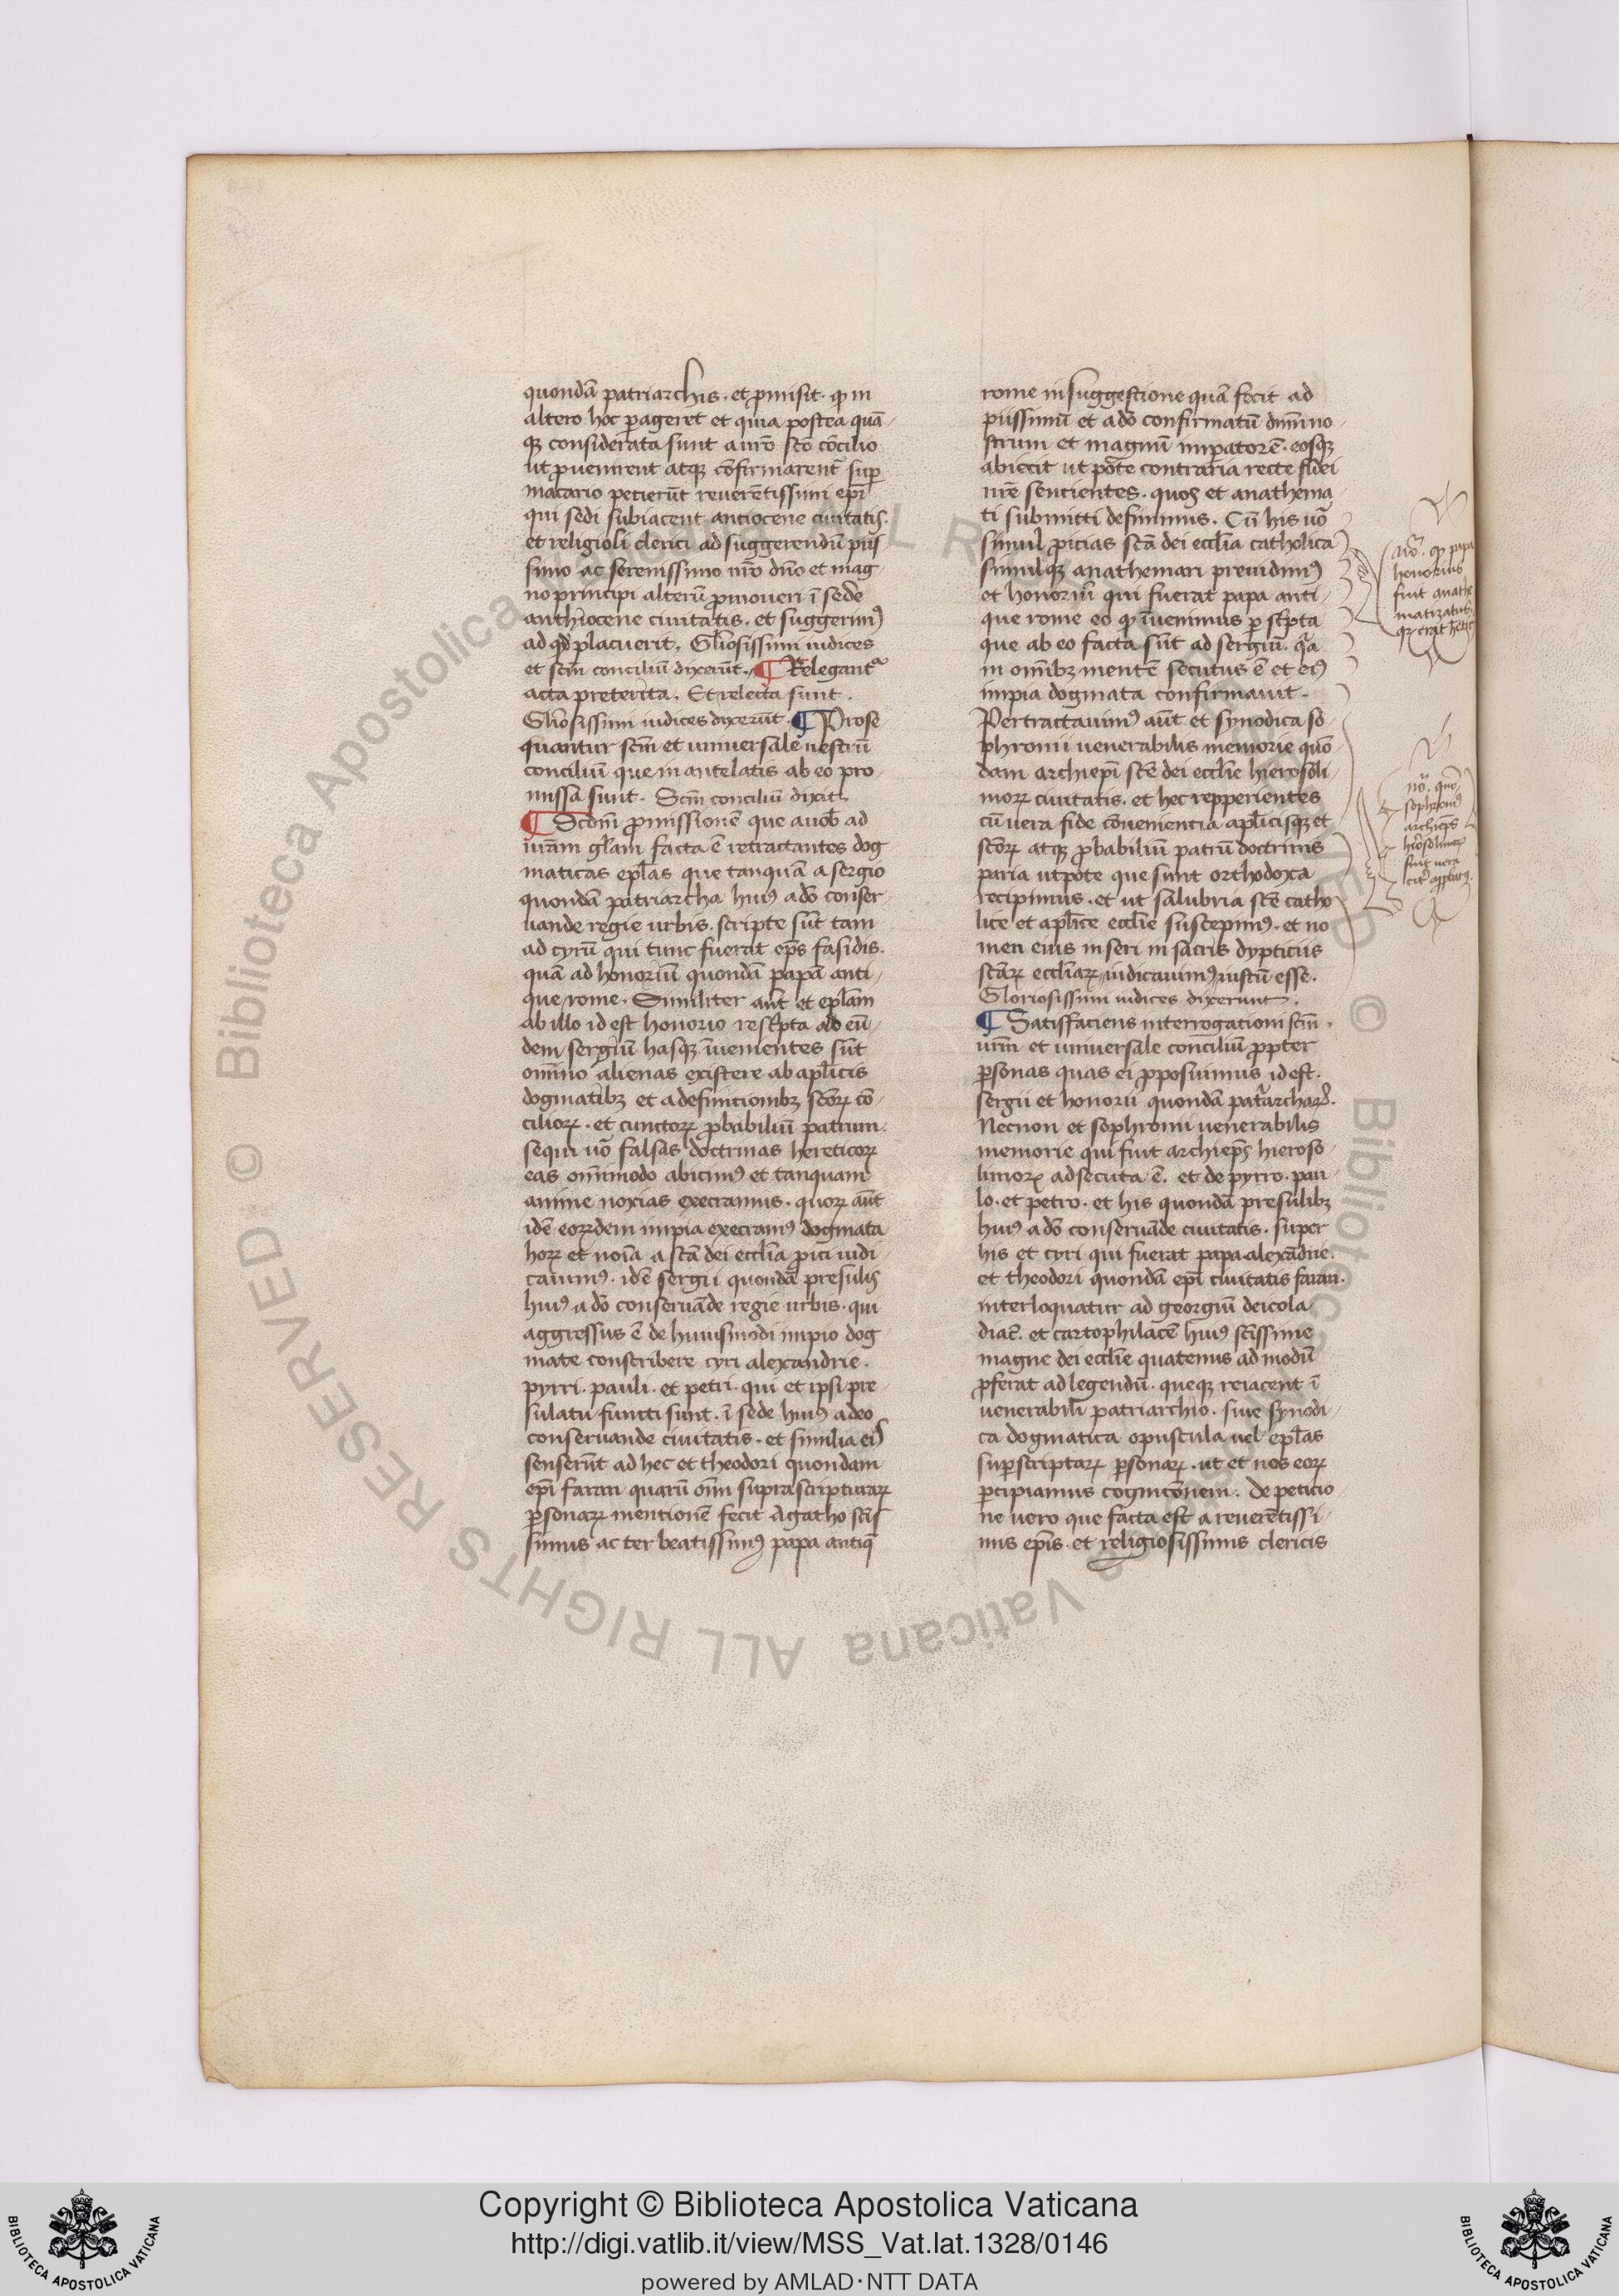 quondā patriarchis. et ꝓmisit. ꝙ in
altero hoc ꝑageret et quia postea quā
qꝫ considerata sunt a nr̄o sc̄o cōcilio
ut ꝓuenirent atqꝫ cōfirmarent̄ suꝑ
macario petierūt reuerētissimi ep̄i
qui sedi subiacent antiocene ciuitatis.
et religiosi clerici ad suggerendū piis
simo ac serenissimo nr̄o dn̄o et mag
no principi alterū ꝓmoueri ī sede
anthiocene ciuitatis. et suggerimꝰ
ad qd̄ placuerit. Gl̄iosissimi iudices
et scm̄ conciliū dixerūt. ¶ Relegantᷣ
acta preterita. Et relecta sunt.
Gl̄iosissimi iudices dixerūt. ¶ Prose
quantur scm̄ et uniuersale uestrū
conciliū que in antelatis ab eo pro
missa sunt. Scm̄ conciliū dixit.
¶ Scdm̄ ꝓmissionē que a uob̄ ad
ur̄am gl̄am facta ē retractantes dog
maticas epl̄as que tanquā a sergio
quondā patriarcha huiꝰ a dō conser
uande regie urbis. scripte sūt tam
ad cyrū qui tunc fuerat ep̄s fasidis.
quā ad honoriū quondā papā anti
que rome. Similiter aūt et epl̄am
ab illo id est honorio rescͥpta ad eū
dem sergiū hasqꝫ īuenientes sūt
omīno alienas existere ab apl̄icis
dogmatibꝫ et a definicionibꝫ sc̄oꝝ cō
cilioꝝ. et cunctoꝝ ꝓbabiliū patrum.
sequi uō falsas doctrinas hereticoꝝ
eas omīmodo abicimꝰ et tanquam
anime noxias execramus. quoꝝ aūt
idē eoꝝdem impia execramꝰ dogmata
hoꝝ et noīa a sc̄a dei eccl̄ia ꝓici iudi
cauimꝰ. idē sergii quondā presulis
huiꝰ a dō conseruāde regie urbis. qui
aggressus ē de huiusmodi impio dog
mate conscribere cyri alexandrie.
pyrri. pauli. et petri. qui et ipsi pre
sulatu functi sunt. ī sede huiꝰ a deo
conseruande ciuitatis. et similia eiꝰ
senserūt ad hec et theodori quondam
ep̄i faran quarū om̄ suprascripturaꝝ
ꝑsonaꝝ mentionē fecit Agatho sc̄is
simus ac ter beatissimꝰ papa antiq̄
rome in suggestione quā fecit ad
piissimū et a dō confirmatū dnm̄ no
strum et magnū imꝑatorē. eosqꝫ
abiecit ut pote contraria recte fidei
nr̄e sentientes. quos et anathema
ti submitti definimus. Cū his uō
simul ꝓicias sc̄ā dei eccl̄ia catholica
simulqꝫ anathemari preuidimꝰ
et honoriū qui fuerat papa anti
que rome eo ꝙ īuenimus ꝑ scͥpta
que ab eo facta sūt ad sergiū. qͣa
in omībꝫ mentē secutus ē et eiꝰ
impia dogmata confirmauit.
Pertractauimꝰ aūt et synodica so
phronii uenerabilis memorie quō
dam archiep̄i sc̄e dei eccl̄ie hierosoli
moꝝ ciuitatis. et hec repperientes
cū uera fide cōuenientia apl̄icisqꝫ et
sc̄oꝝ atqꝫ ꝓbabiliū patrū doctrinis
paria utpote que sunt orthodoxa
recipimus. et ut salubria sc̄e catho
lice et apl̄ice eccl̄ie suscepimꝰ. et no
men eius inseri in sacris dypticiis
sc̄aꝝ eccl̄iaꝝ iudicauimꝰ iustū esse.
Gloriosissimi iudices dixerunt.
¶ Satisfaciens interrogationi scm̄.
urm̄ et uniuersale concilīū ꝓpter
ꝑsonas quas ei ꝓposuimus id est.
sergii et honorii quondā patͥarcharꝰ.
Necnon et sophronii uenerabilis
memorie qui fuit archiep̄s hieroso
limoꝝ adsecuta ē. et de pyrro. pau
lo. et petro. et his quondā presulibꝫ
huiꝰ a dō conseruāde ciuitatis. super
his et cyri qui fuerat papa alexādrie.
et theodori quondā ep̄i ciuitatis faran.
interloquatur ad georgiū deicola
diac̄. et cartophilacē huiꝰ sc̄issime
magne dei eccl̄ie quatenus ad modū
ꝓferat ad legendū. queqꝫ reiacent ī
uenerabili patriarchio. siue synodi
ca dogmatica opuscula uel epl̄as
suꝑscriptaꝝ ꝑsonaꝝ. ut et nos eoꝝ
ꝑcipiamus cognicōnem. De peticio
ne uero que facta est a reuerētissi
mis ep̄is. et religiosissimis clericis
nō. ꝙ papa
honorius
fuit anathe
matizatus
nō. quō
sophroniꝰ
archiep̄s
hierosolimoꝝ
fuit uera
Copyright © Biblioteca Apostolica Vaticana
http://digi.vatlib.it/view/MSS_Vat.lat.1328/0146
powered by AMLAD·NTT DATA
BIBLIOTECA APOSTOLICA VATICANA
BIBLIOTECA APOSTOLICA VATICANA
© Biblioteca Apostolica Vaticana ALL RIGHTS RESERVED